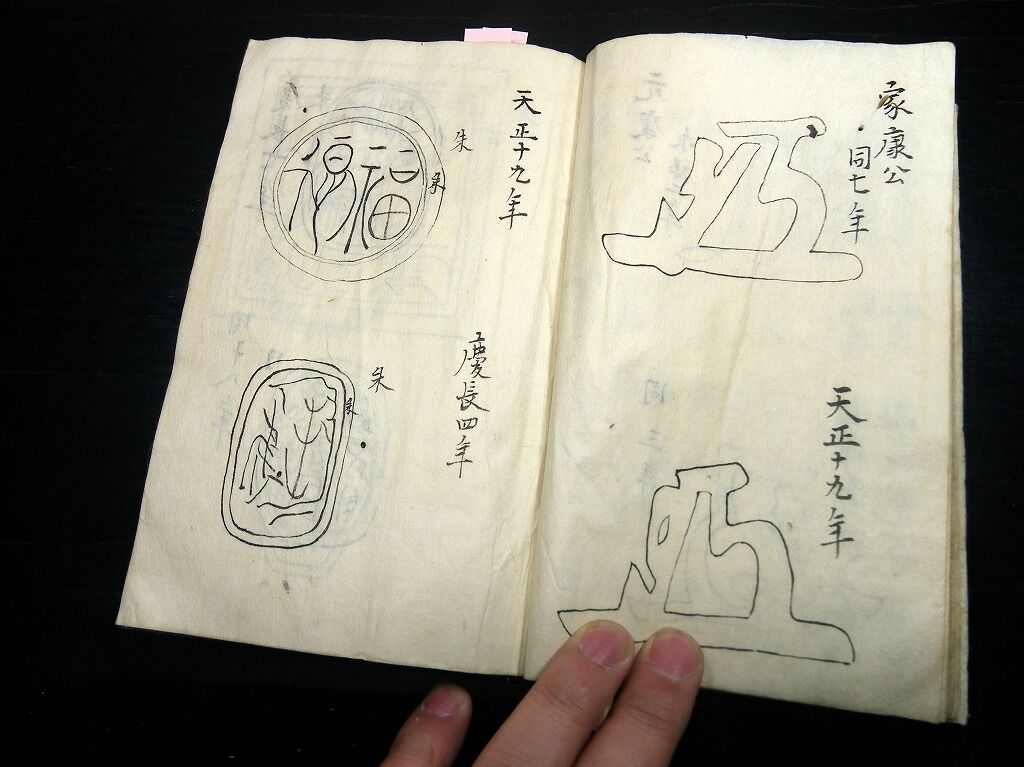 家康公
同七年
天正十九年
天正十九年
朱
朱
福
慶長四年
朱
朱